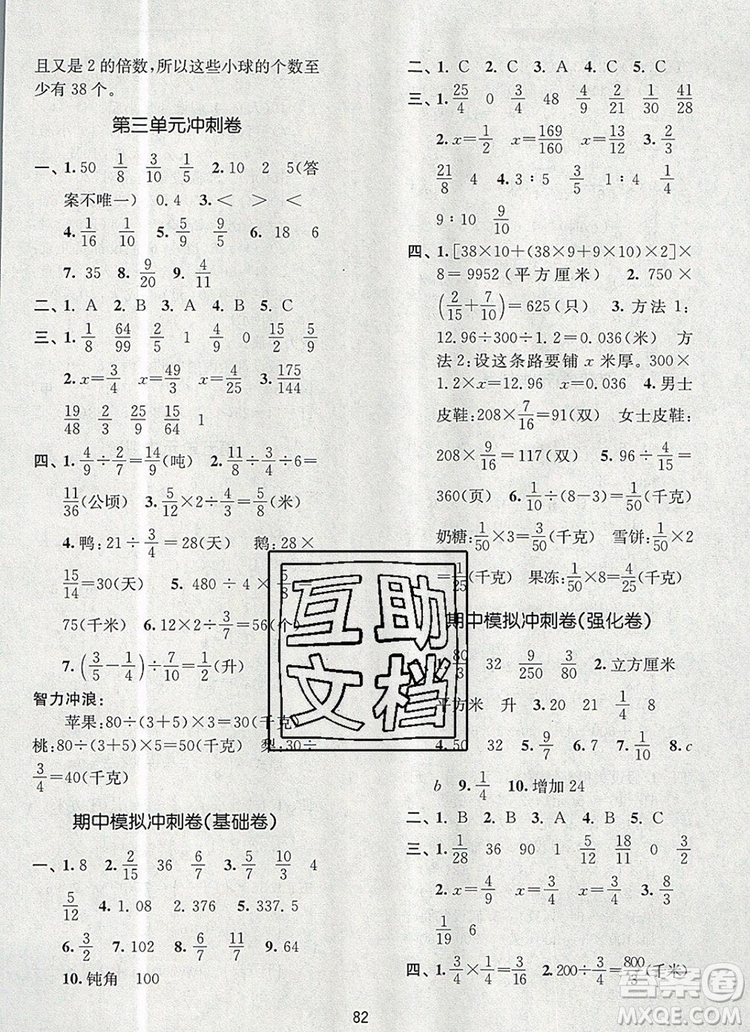 且又是 2 的倍数,所以这些小球的个数至
少有 38 个。
第三单元冲刺卷
一、1. 50 1/8 3/10 2. 10 2 5(答
案不唯一) 0.4 3. < > <
4. 1/16 1/10 5. 5/9 3/5 6. 18 6
7. 35 8. 9/20 9. 4/11
二、1. A 2. B 3. A 4. B 5. C
三、1. 1/8 64/99 25/2 1 9/4 1/3
2. x=3/4 x=49/3 x=4/25 3. 175/144
19/48 2/3 25/9 15/17 1
四、1. 4/9÷2/7=14/9(吨) 2. 11/8÷3/4÷6=
11/36(公顷) 3. 5/12×2÷4/3=5/8(米)
4. 鸭:21÷3/4=28(天) 鹅:28×
15/14=30(天) 5. 480÷4×5/8=
75(千米) 6.
7. (3/5-1/15)÷
智力冲浪:
苹果:80÷(3+5)×3=30(千克)
桃:80÷(3+5) 梨:30÷
3/4=40(千克)
期中模拟冲刺卷(基础卷)
一、1. 8 2. 2/15 36 6/7 3. 5/9 3/5 4
5/12 4. 1.08 2.376 5. 337.5
6. 3/2 7. 102 8. 6/7 6/19 9. 64
10. 钝角 100
二、1. C 2. C 3. B 4. C 5. C
三、1. 25/4 0 48 4/7 6/5 41/28
2. x=1/2 x=169/160 x=13/16 3.
21/8 4/9 4. 3:5 15/4 1:4 3/4
9:10 9/10
四、1. [38×10+(38×9+9×10)×2]×
8=9952(平方厘米) 2. 750×
(2/15+7/10)=625(只) 3. 方法 1:
12.96÷300÷1.2=0.036(米) 方
法 2:设这条路要铺 x 米厚。300×
1.2×x=12.96 x=0.036 4. 男士
皮鞋:208×7/16=91(双) 女士皮鞋:
208×9/16=117(双) 5. 96÷4/15=
360(页) 6. 1/10÷(8-3)=1/50(千克)
奶糖:1/50×3=3/50(千克) 雪饼:1/50×2=
1/25(千克) 果冻:1/50×8=4/25(千克)
期中模拟冲刺卷(强化卷)
80/3 32 9/250 80/3 2. 立方厘米
平方米 升 3. 20 21 1/4 8
4. 50 32 5. 9/7 6. 0 7. 7 8. c
b 9. 1/4 10. 增加 24
二、1. A 2. B 3. C 4. B 5. A
三、1. 1/28 36 90 1 11/18 0 3/2
2. x=4/9 x=1/2 x=1/6 3. 6/49
1/19 6
四、1. 3/4×1/4=3/16 2. 200÷3/4=800/3(千米)
82
互助
文档
答案圈
MXQE.COM